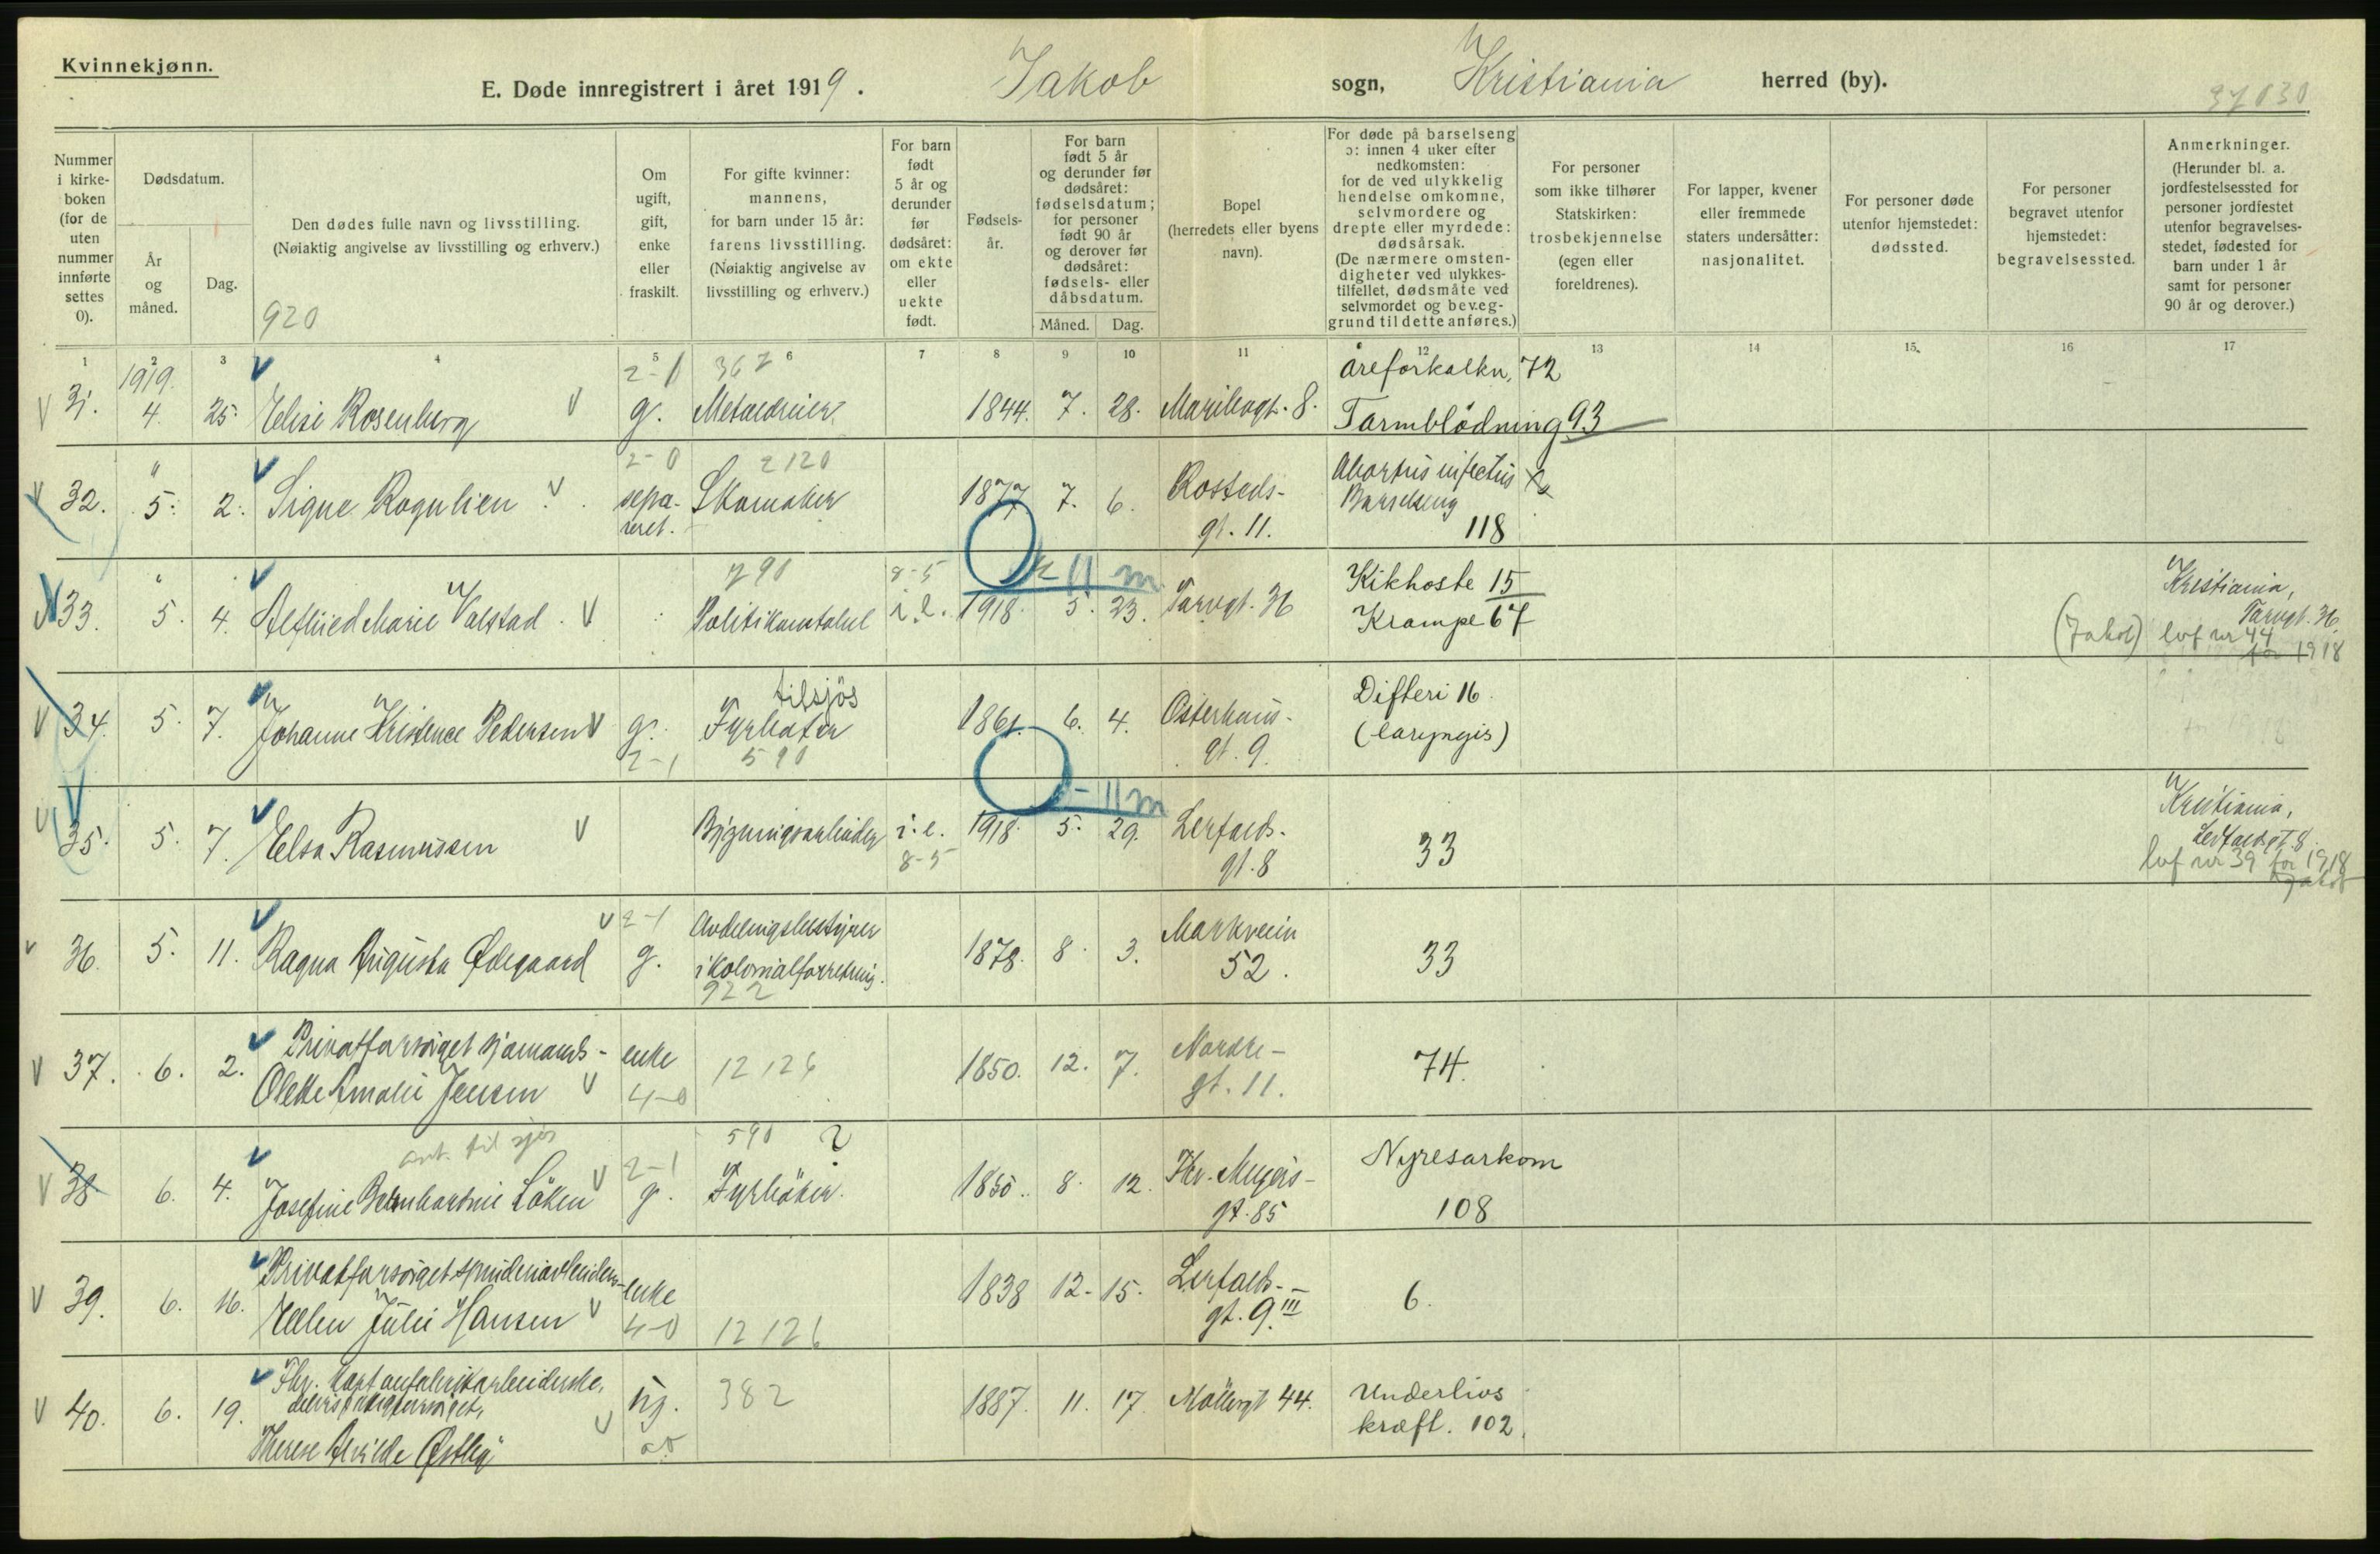 Kvinnekjønn.
E. Døde innregistrert i året 1919. Jakob sogn, Kristiania herred (by).
37030
Nummer i kirke-boken (for de uten nummer innførte settes 0).
Dødsdatum.
År og måned.
Dag.
Den dødes fulle navn og livsstilling.
(Nøiaktig angivelse av livsstilling og erhverv.)
920
Om ugift, gift, enke eller fraskilt.
For gifte kvinner: mannens, for barn under 15 år: farens livsstilling. (Nøiaktig angivelse av livsstilling og erhverv.)
For barn født 5 år og derunder før dødsåret: om ekte eller uekte født.
Fødsels-år.
For barn født 5 år og derunder før dødsåret: fødselsdatum; for personer født 90 år og derover før dødsåret: fødsels- eller dåbsdatum.
Måned. Dag.
Bopel (herredets eller byens navn).
For døde på barselseng ɔ: innen 4 uker efter nedkomsten: for de ved ulykkelig hendelse omkomne, selvmordere og drepte eller myrdede: dødsårsak. (De nærmere omsten-digheter ved ulykkes-tilfellet, dødsmåte ved selvmordet og beveg-grund til dette anføres.)
For personer som ikke tilhører Statskirken: trosbekjennelse (egen eller foreldrenes).
For lapper, kvener eller fremmede staters undersåtter: nasjonalitet.
For personer døde utenfor hjemstedet: dødssted.
For personer begravet utenfor hjemstedet: begravelsessted.
Anmerkninger. (Herunder bl. a. jordfestelsessted for personer jordfestet utenfor begravelses-stedet, fødested for barn under 1 år samt for personer 90 år og derover.)
1 2 3 4 5 6 7 8 9 10 11 12 13 14 15 16 17
1919. 2-1 367 åreforkalkn. 72
31. 4. 25. Elise Rosenberg g. Metaldreier 1844. 7. 28. Maribogt. 8. Tarmblödning 93
" 2-0 2120 Abortus infectus
32. 5. 2. Signe Rognlien sepa-reret. Skomaker 1877. 7. 6. Rosteds-gt. 11. Barselseng 118
" 790 8-5 11 m Kikhoste 15 Kristiania,
33. 5. 4. Alfhild Marie Valstad Politikonstabel i.e. 1918. 5. 23. Torvgt. 36 Krampe 67 Torvgt. 36
(Jakob) lvf nr 44 for 1918
tilsjös Difteri 16.
34. 5. 7. Johanne Kristence Pedersen g. Fyrböter 1861. 6. 4. Osterhaus-gt. 9. (laryngis)
2-1 590
11 m Kristiania,
35. 5. 7. Elsa Rasmussen Bygningsarbeider i.e. 1918. 5. 29. Lerfalds-gt. 8 33 Lerfaldsgt. 8.
8-5 lvf nr 39 for 1918 Jakob
2-1 Avdelingsbestyrer
36. 5. 11. Ragna Augusta Ødegaard g. i kolonialforretning. 1878. 8. 3. Markveien 52. 33
922
Privatforsörget sjömands-
37. 6. 2. Olette Amalie Jensen enke 12126 1850. 12. 7. Nordre-gt. 11. 74.
4-0
ant. til sjös 590 2 Nyresarkom
38 6. 4. Josefine Bernhardine Löken 2-1 g. Fyrböter. 1850. 8. 12. Thv. Meyers-gt. 85 108
Privatforsörget spinderiarbeider-
39. 6. 16. Ellen Julie Hansen enke 1838 12. 15. Lerfalds-gt. 9.III 6.
4-0 12126
Fhv. kartonfabrikarbeiderske,
40. 6. 19. Therese Alvilde Østby ug. 382 1887. 11. 17. Möllergt 44. Underlivs kræft. 102.